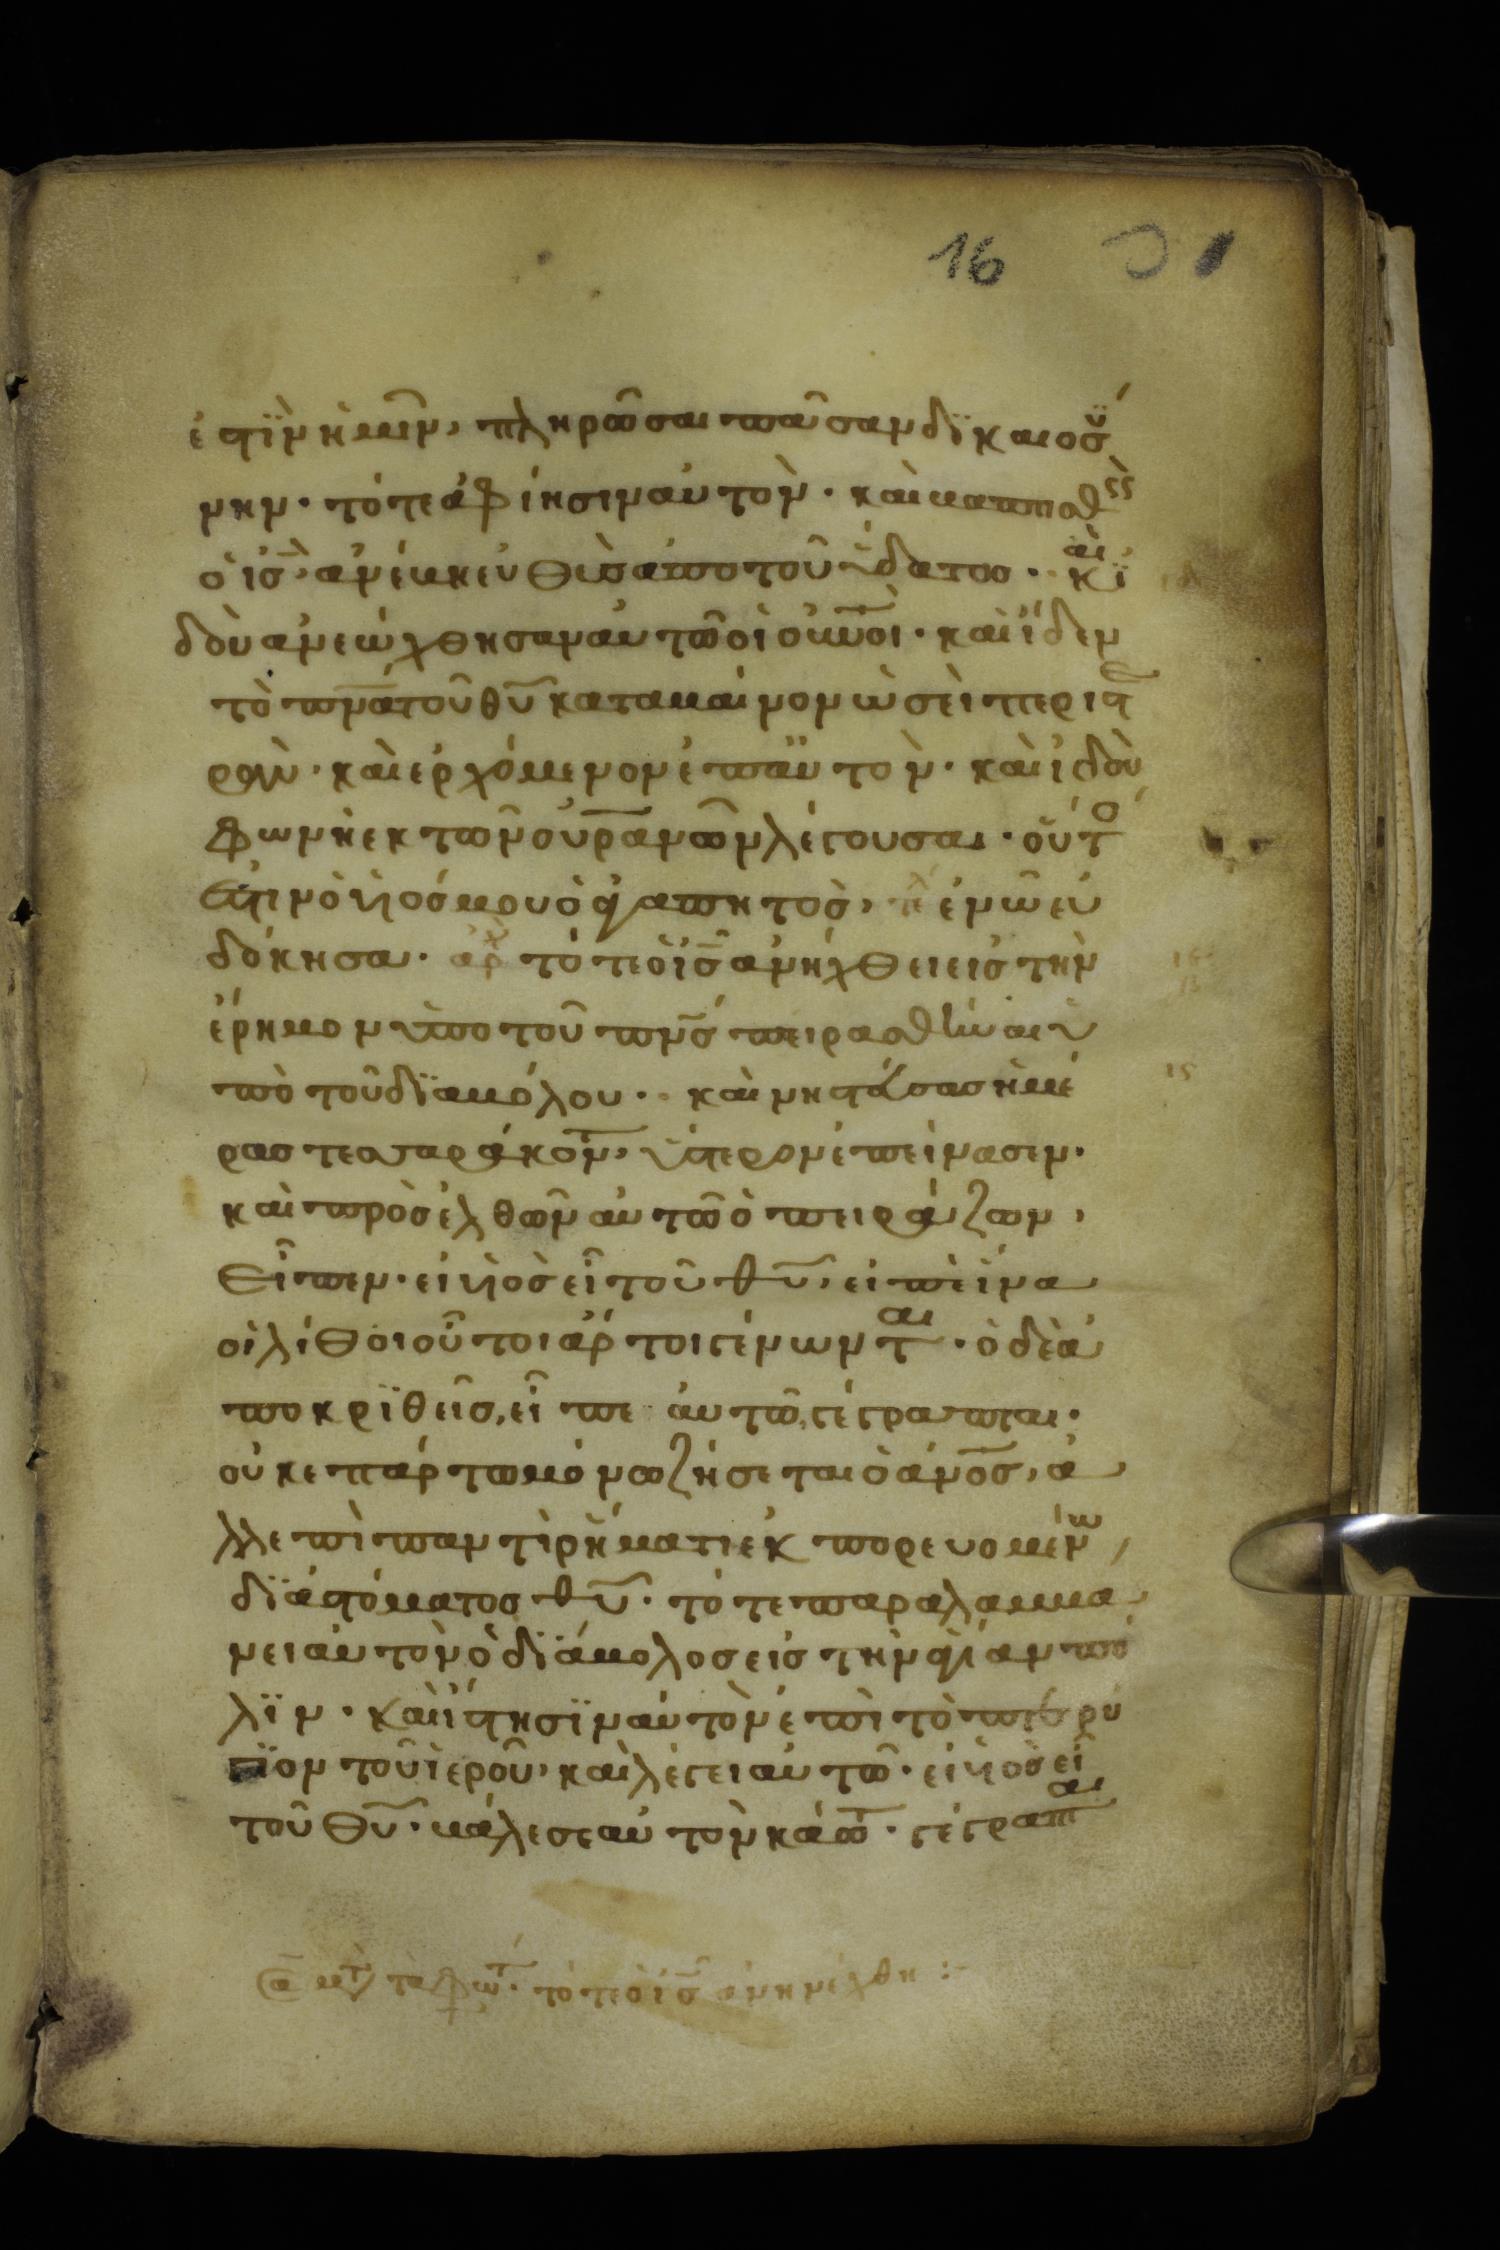 16
ἐστϊν ἡμῖν, πληρῶσαι πᾶσαν δϊκαιοσὔ
νην· τότε ἀφίησιν αὐτὸν· καὶ βαπτισθςς
ὁ ι̅ς̅, ἀνέβη εὐθὺς ἀπο τοῦ ὕδατος·· καὶ ϊ
δοὺ ἀνεώχθησαν αὐτῶ οἱ οὐ̅ν̅οὶ· καὶ ἵδεν
τὸ π̅ν̅α̅ τοῦ θ̅υ̅ καταβαίνον ὡσεὶ περιστ
ρὰν· καὶ ἐρχόμενον ἐπ αὐτὸν· καὶ ἰδοὺ
φωνὴ ἐκ τῶν οὐρ̅α̅νῶν λέγουσα· οὗτο
ἐστιν ὁ ὑιός μου ὁ ἀγαπητὸς, ἐν ὧ εὐ
δόκησα· ἀρχ τότε ὁ ι̅ς̅ ἀνήχθει εἰς τὴν
ἔρημον ὑπο τοῦ π̅ν̅ς̅ πειρασθῆναι ὑ
πὸ τοῦ δϊαβόλου·· καὶ νηστεύσας ἡμέ
ρας τεσσαράκον̅τ̅, ὕστερον ἐπείνασεν·
καὶ προσελθῶν αὐτῶ ὁ πειράζων,
εἶπεν· εἰ ὑιὸς εἶ τοῦ θ̅υ̅, εἰπὲ ἵνα
οἱ λίθοι οὗτοι ἄρτοι γένωνται· ὁ δὲ ἀ
ποκρϊθεῖς, εἶπε αὐτῶ, γέγραπται·
οὐκ ἐπ ἄρτω μόνω ζήσεται ὁ ἄν̅ο̅ς̅, ἀ
λλ ἐπὶ παντὶ ρήματι ἐκπορευομένω
δϊὰ στόματος θ̅υ̅· τότε παραλαμβά
νει αὐτὸν ὁ δϊάβολος εἰς τὴν ἁγίαν πό
λϊν· καὶ ἵστησϊν αὐτὸν ἐπὶ τὸ πτερύ
γϊον τοῦ ἱεροῦ, καὶ λέγει αὐτῶ· εἰ ὑιὸς εἶ
τοῦ θ̅υ̅· βάλε σεαυτὸν κάτω· γέγραπται
τὰ φῶτ· τότε ὁ ι̅ς̅ ἀνηνέχθη :-